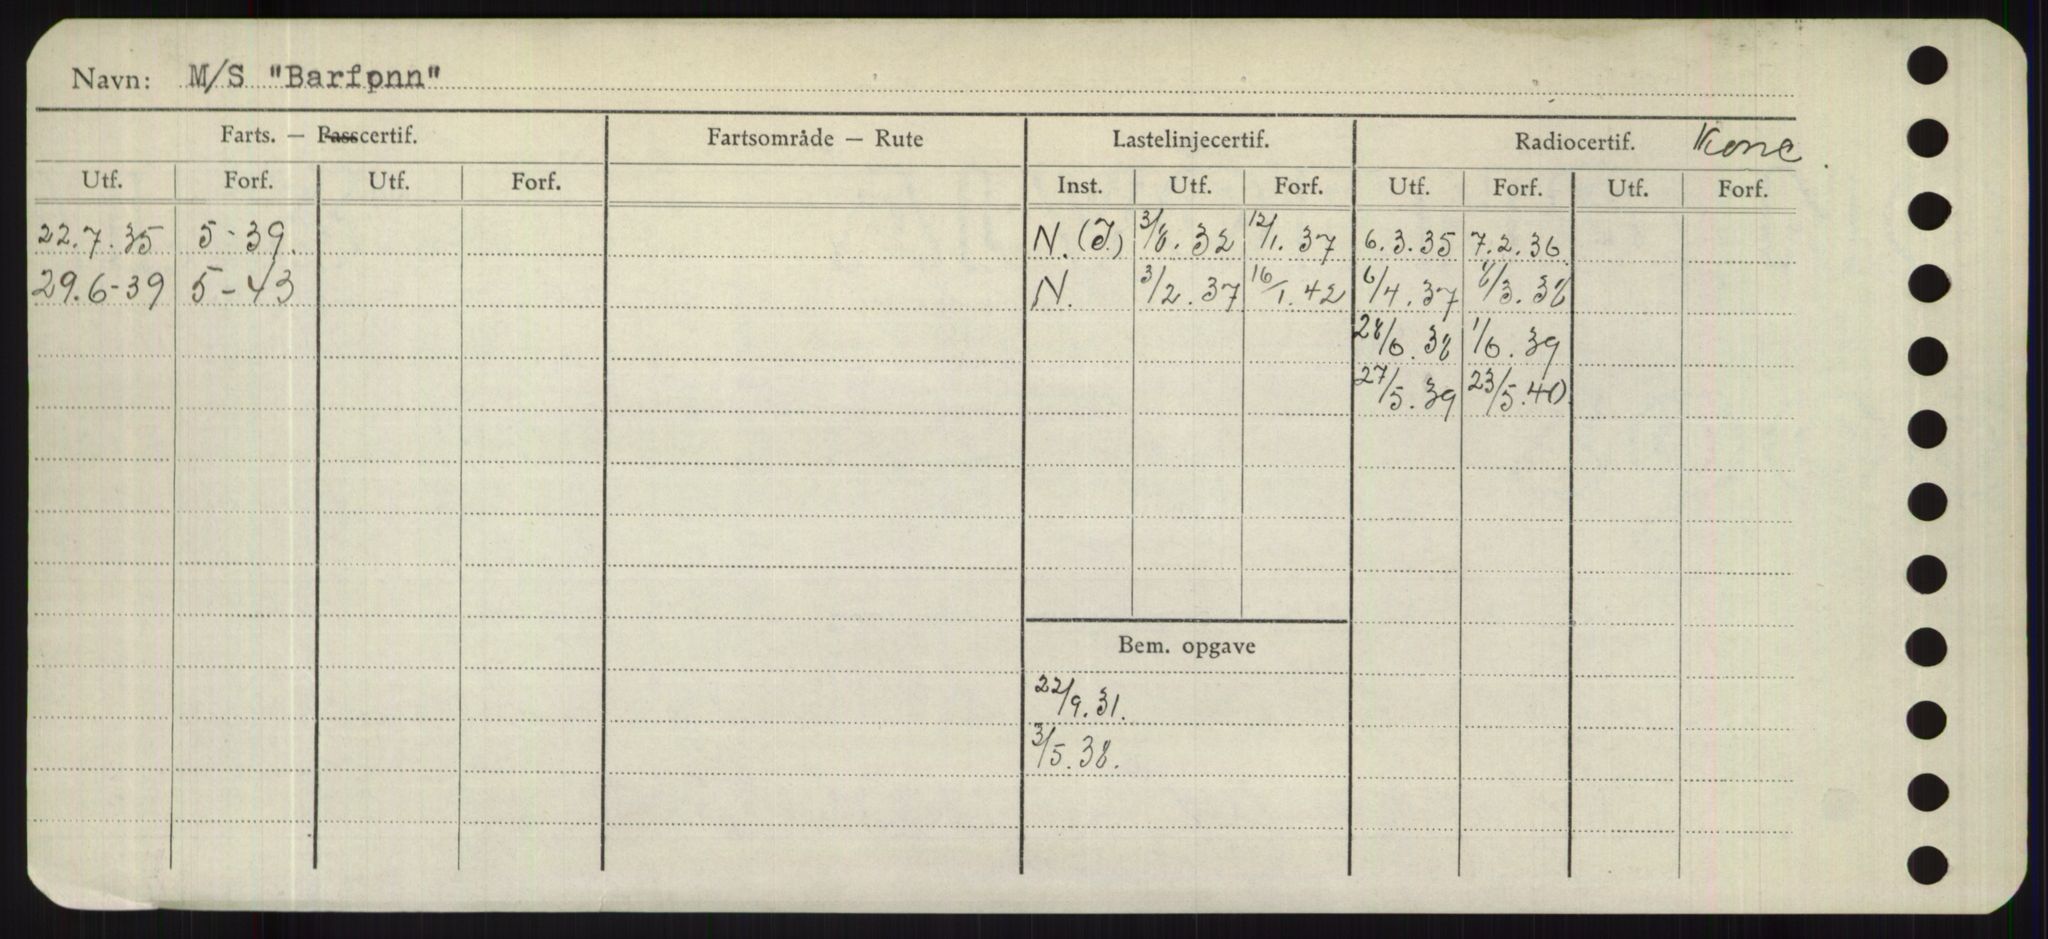 Navn: M/S "Barfonn"
Farts. — Passcertif. Fartsområde — Rute Lastelinjecertif. Radiocertif. Konc.
Utf. Forf. Utf. Forf. Inst. Utf. Forf. Utf. Forf. Utf. Forf.
22.7.35 5-39. N. (I.) 3/8.32 12/1.37 6.3.35 7.2.36
29.6-39 5-43 N. 3/2.37 16/1.42 6/4.37 /3.38
28/6.38 1/6.39
27/5.39 23/5.40.
Bem. opgave
22/9.31.
3/5.38.